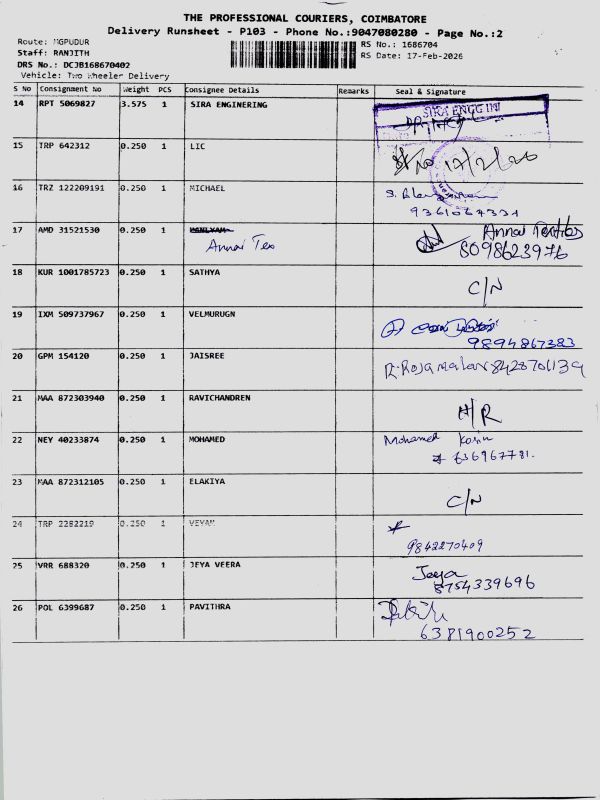 THE PROFESSIONAL COURIERS, COIMBATORE
Delivery Runsheet - P103 - Phone No.:9047080280 - Page No.:2
Route: MGPUDUR
Staff: RANJITH
DRS No.: DCJB168670402
Vehicle: Two Wheeler Delivery
RS No.: 1686704
RS Date: 17-Feb-2026
S No Consignment No Weight PCS Consignee Details Remarks Seal & Signature
14 RPT 5069827 3.575 1 SIRA ENGINERING
SIRA ENGG INI
15 TRP 642312 0.250 1 LIC
17/2/26
16 TRZ 122209191 0.250 1 MICHAEL
9361067331
17 AMD 31521530 0.250 1
Annai Tex
Annai
8098623976
18 KUR 1001785723 0.250 1 SATHYA
C/N
19 IXM 509737967 0.250 1 VELMURUGN
9894867383
20 GPM 154120 0.250 1 JAISREE
R. Rojamalar 8428701139
21 MAA 872303940 0.250 1 RAVICHANDREN
H/R
22 NEY 40233874 0.250 1 MOHAMED
Mohamed
23 MAA 872312105 0.250 1 ELAKIYA
C/N
24 TRP 2282219 0.250 1 VEYAM
9842270409
25 VRR 688320 0.250 1 JEYA VEERA
Jeya
8754339696
26 POL 6399687 0.250 1 PAVITHRA
6381900252